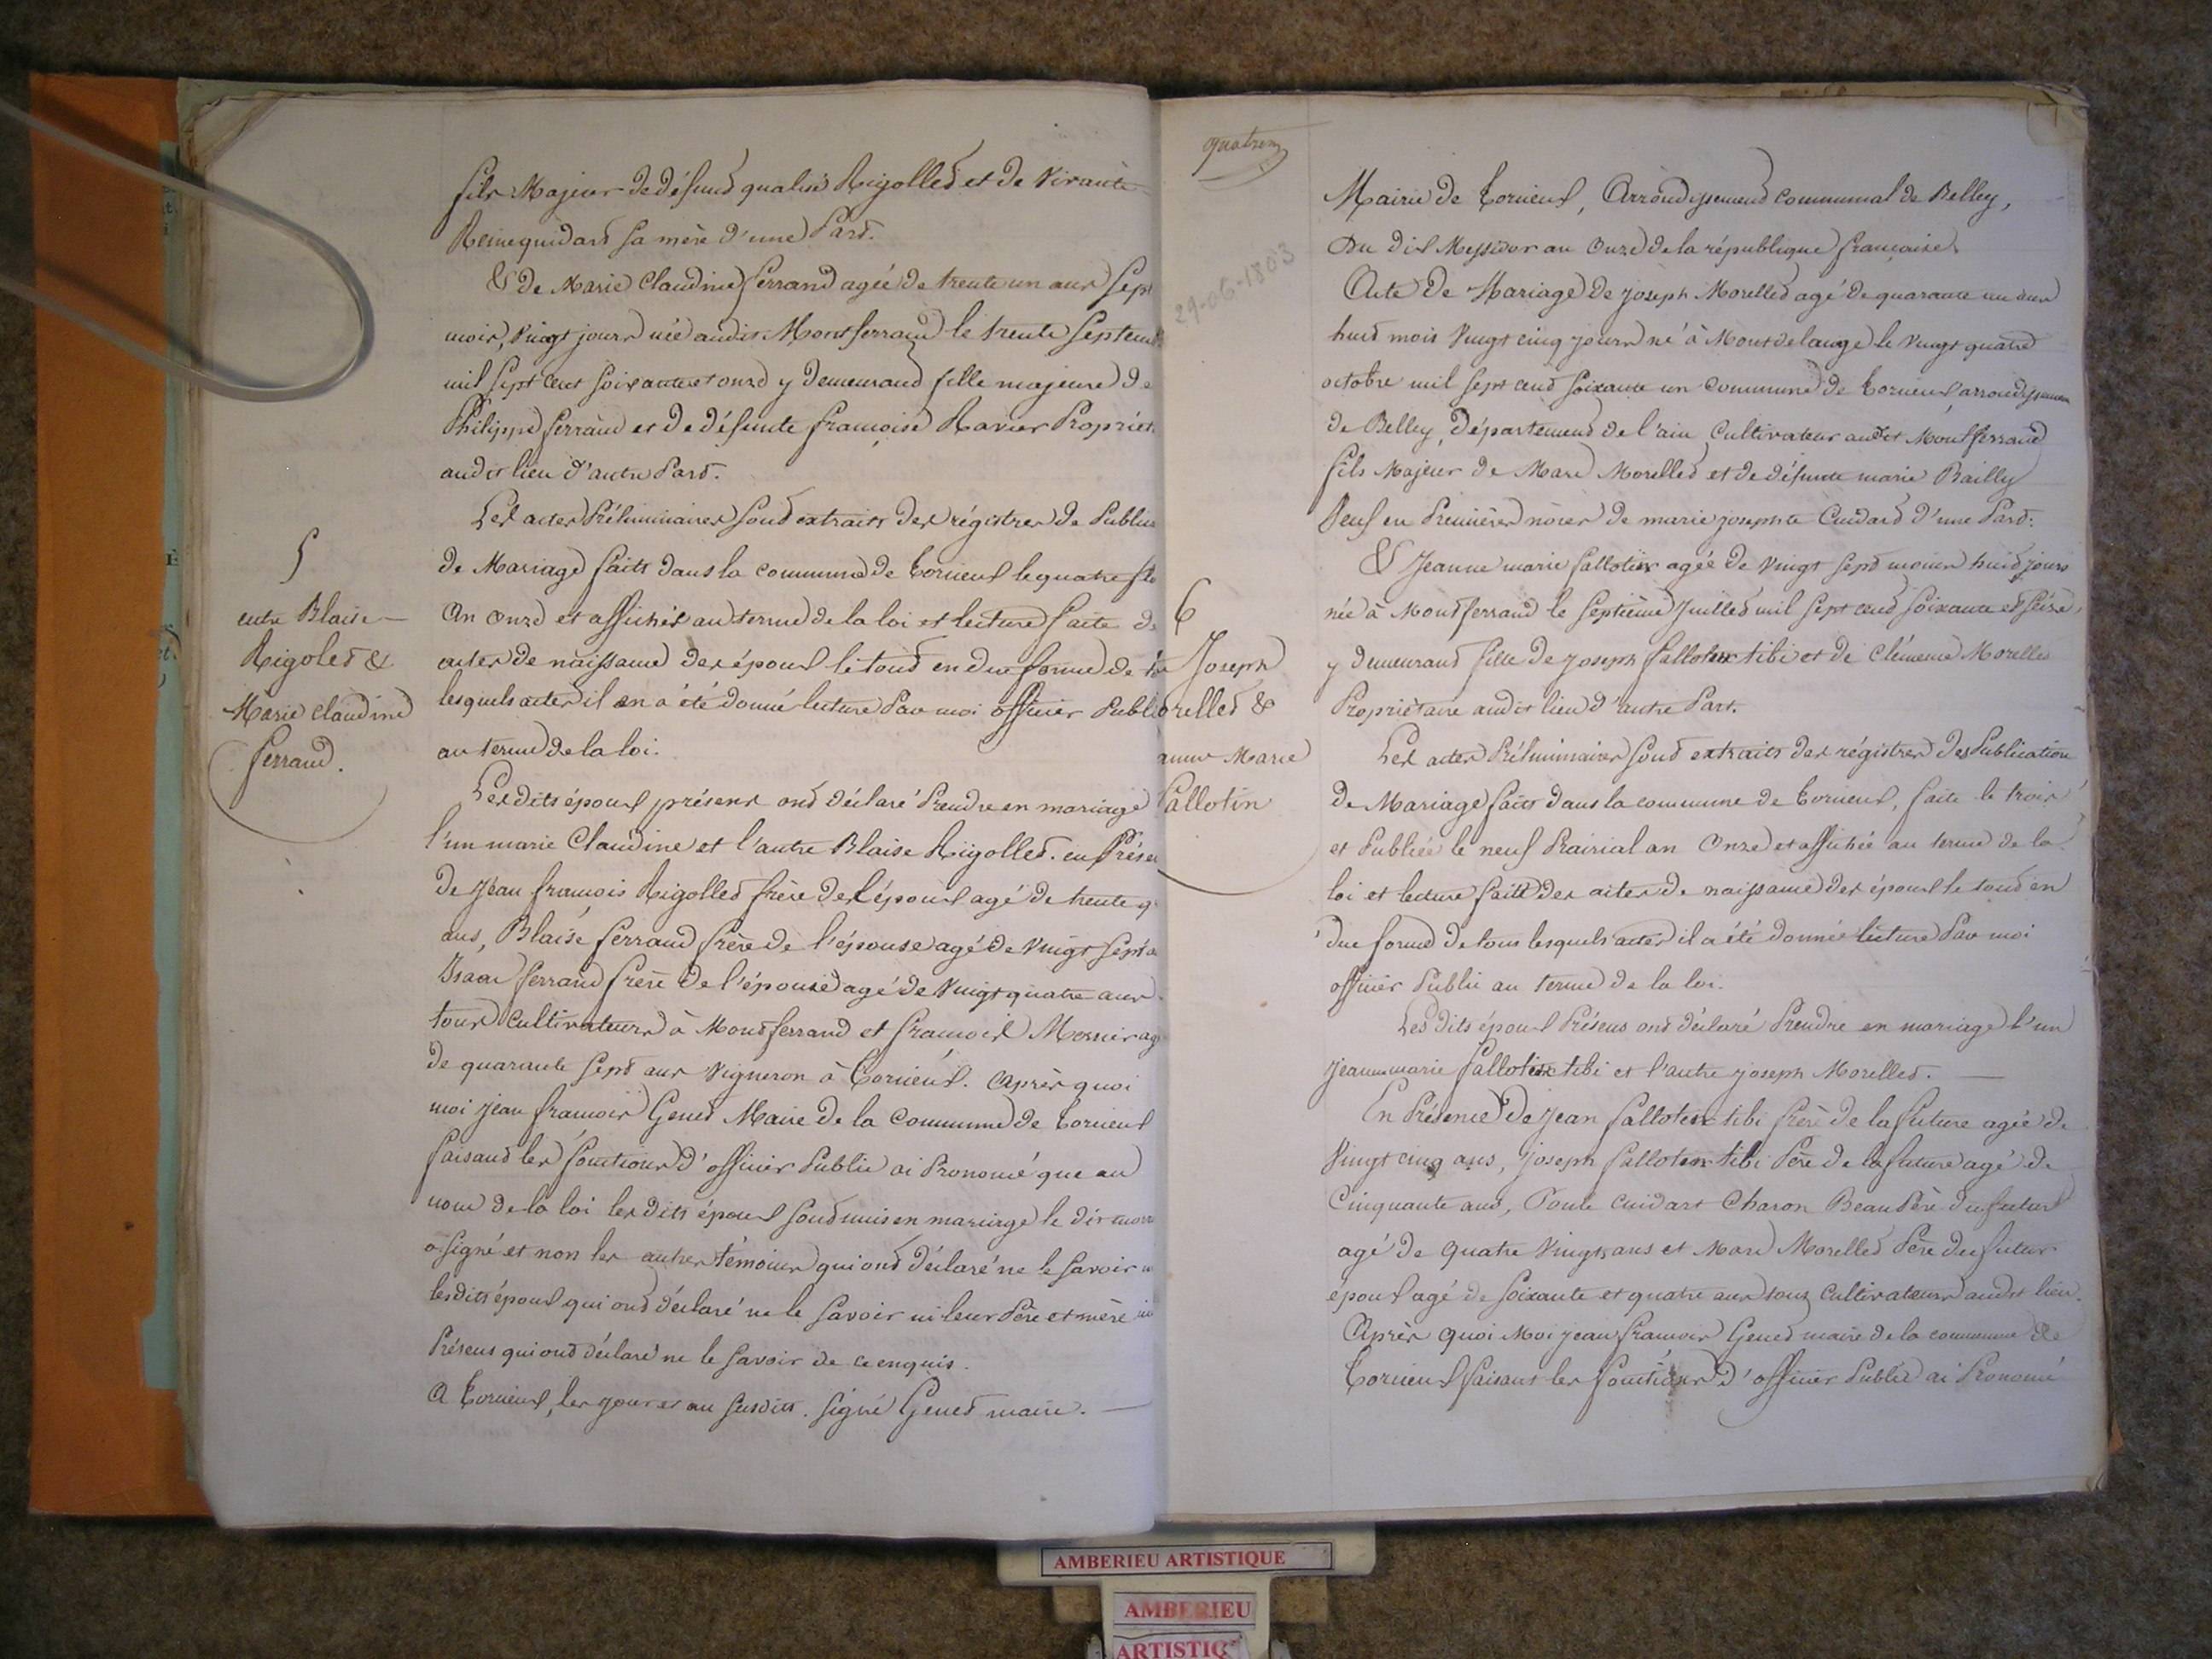 fils Majeur de défund qualisé Rigolled et de Vivante
Reinequidard sa mère d'une Part.
& de Marie Claudine ferrand agée de trente un ans sept
mois, vingt jours née audit Montferrand le trente Septem
mil sept cent soixante et onze y demeurand fille majeure de
Philippe ferrand et de défunte francoise Ravier Propriét
audit lieu d'autre Part.
Les actes Préliminaires sond extraits des régistres de Public
de Mariage faits dans la commune de Torcieus le quatre
An onze et affichés au terme de la loi et lecture faite d
actes de naissance des épous le toud en due forme de
lesquels actes il en a été donné lecture Par moi officier Publi
au terme de la loi.
Lesdits épous présens ond déclaré Prendre en mariage
l'un marie Claudine et l'autre Blaise Rigolled. en Présen
de Jean francois Rigolled frère de l'épous agé de trente q
ans, Blaise ferrand frère de l'épouse agé de vingt sept a
Isaac ferrand frère de l'épouse agé de vingt quatre ans
tous cultivateurs à Montferrand et francois Mernier ag
de quarante sept ans vigneron à Torcieus. Après quoi
moi jean francois Gened Maire de la Commune de Torcieus
faisand les fonctions d'officier Public ai Prononcé que au
nom de la loi les dits épous sond unis en mariage le dit
a signé et non les autres témoins qui ond déclaré ne le savoir
lesdits épous qui ond déclaré ne le savoir ni leur Père et mère
Présens qui ond déclaré ne le savoir de ce enquis.
A Torcieus, les jour et an susdits. signé Gened maire.
5
entre Blaise
Rigoled &
Marie claudine
ferrand.
quatre
29-06-1803
6
Joseph
orelled &
anne Marie
Pallotin
Mairie de Torcieus, Arrondissement communal de Belley,
Du dix Messidor an Onze de la république francaise.
Acte de Mariage de joseph Morelled agé de quarante un ans
huid mois vingt cinq jours né à Montdelange le vingt quatre
octobre mil sept cend soixante un commune de Torcieus arrondissemen
de Belley, Département de l'ain Cultivateur audit Montferrand
fils Majeur de Marc Morelled et de défunte marie Bailly
Veuf en Premières nôces de marie josephte Cuidard d'une Part.
& Jeanne marie fallotin agée de vingt sept moins huid jours
née à Montferrand le septième Juilled mil sept cend soixante et seize,
y demeurand fille de joseph fallotin tibi et de Clémence Morelled
Propriétaire audit lieu d'autre Part.
Les actes Préliminaires sond extraits des régistres des Publication
de Mariage faits dans la commune de Torcieus, faite le trois
et Publiée le neuf Prairial an Onze et affichée au terme de la
loi et lecture faitte des actes de naissance des épous le toud en
due forme de tous lesquels actes il a été donnée lecture Par moi
officier Public au terme de la loi.
Les dits épous Présens ond déclaré Prendre en mariage l'un
jeanne marie fallotin tibi et l'autre joseph Morelled.
En Présence de jean fallotin tibi frère de la future agée de
Vingt cinq ans, Joseph fallotin tibi Père de la future agé de
Cinquante ans, Ponte Cuidart Charon Beau Père du futur
agé de quatre vingts ans et Marc Morelled Père du futur
épous agé de soixante et quatre ans tous Cultivateurs audit lieu.
Après quoi Moi jean francois Gened maire de la commune de
Torcieus faisant les fonctions d'officier Public ai Prononcé
AMBERIEU ARTISTIQUE
AMBERIEU
ARTISTIQ